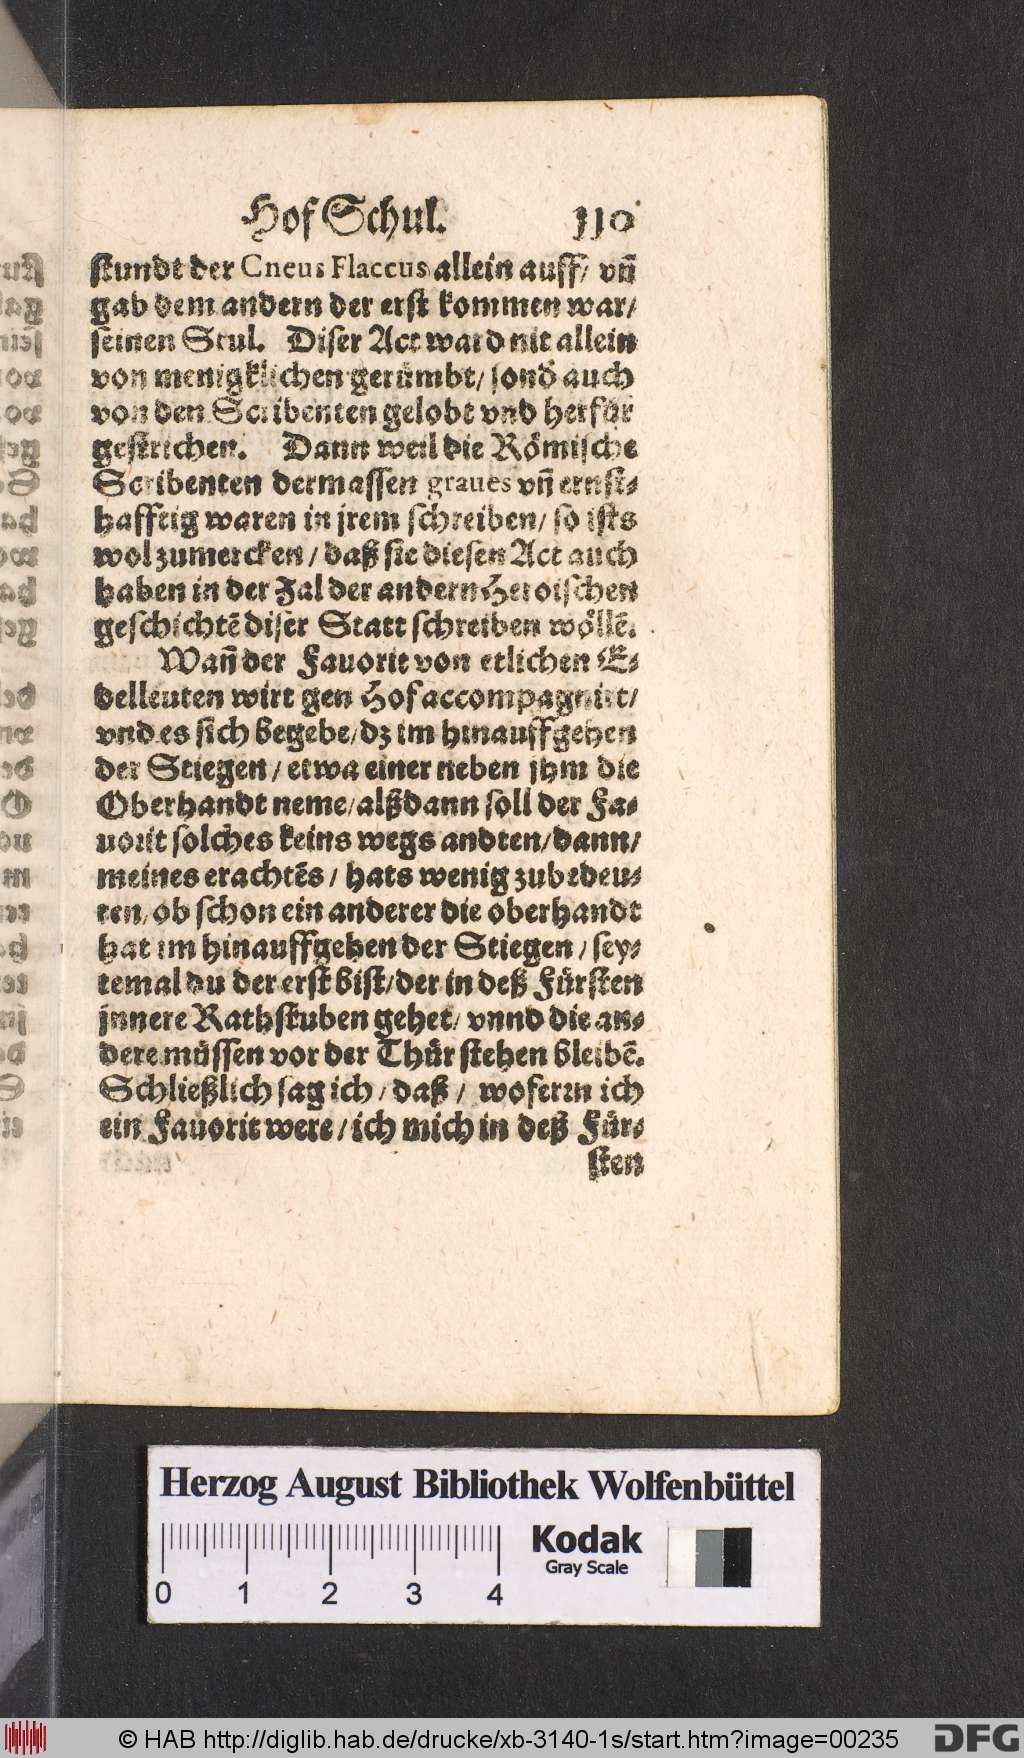 Hof Schul. 110
stundt der Cneus Flaccus allein auff/ vñ
gab dem andern der erst kommen war/
seinen Stul. Diser Act ward nit allein
von menigklichen gerümbt/ sond̄ auch
von den Scribenten gelobt vnd herfür
gestrichen. Dann weil die Römische
Scribenten dermassen graues vñ ernst-
hafftig waren in jrem schreiben/ so ists
wol zumercken/ daß sie diesen Act auch
haben in der Zal der andern Heroischen
geschichtē diser Statt schreiben wöllē.
Wañ der Fauorit von etlichen E-
delleuten wirt gen Hof accompagnirt/
vnd es sich begebe/ dz im hinauffgehen
der Stiegen/ etwa einer neben jhm die
Oberhandt neme/ alßdann soll der Fa-
uorit solches keins wegs andten/ dann/
meines erachtēs/ hats wenig zubedeu-
ten/ ob schon ein anderer die oberhandt
hat im hinauffgehen der Stiegen/ sey-
temal du der erst bist/ der in deß Fürsten
jnnere Rathstuben gehet/ vnnd die an-
dere müssen vor der Thür stehen bleibē.
Schließlich sag ich/ daß/ woferrn ich
ein Fauorit were/ ich mich in deß Für-
sten
Herzog August Bibliothek Wolfenbüttel
Kodak
Gray Scale
0 1 2 3 4
© HAB http://diglib.hab.de/drucke/xb-3140-1s/start.htm?image=00235
DFG